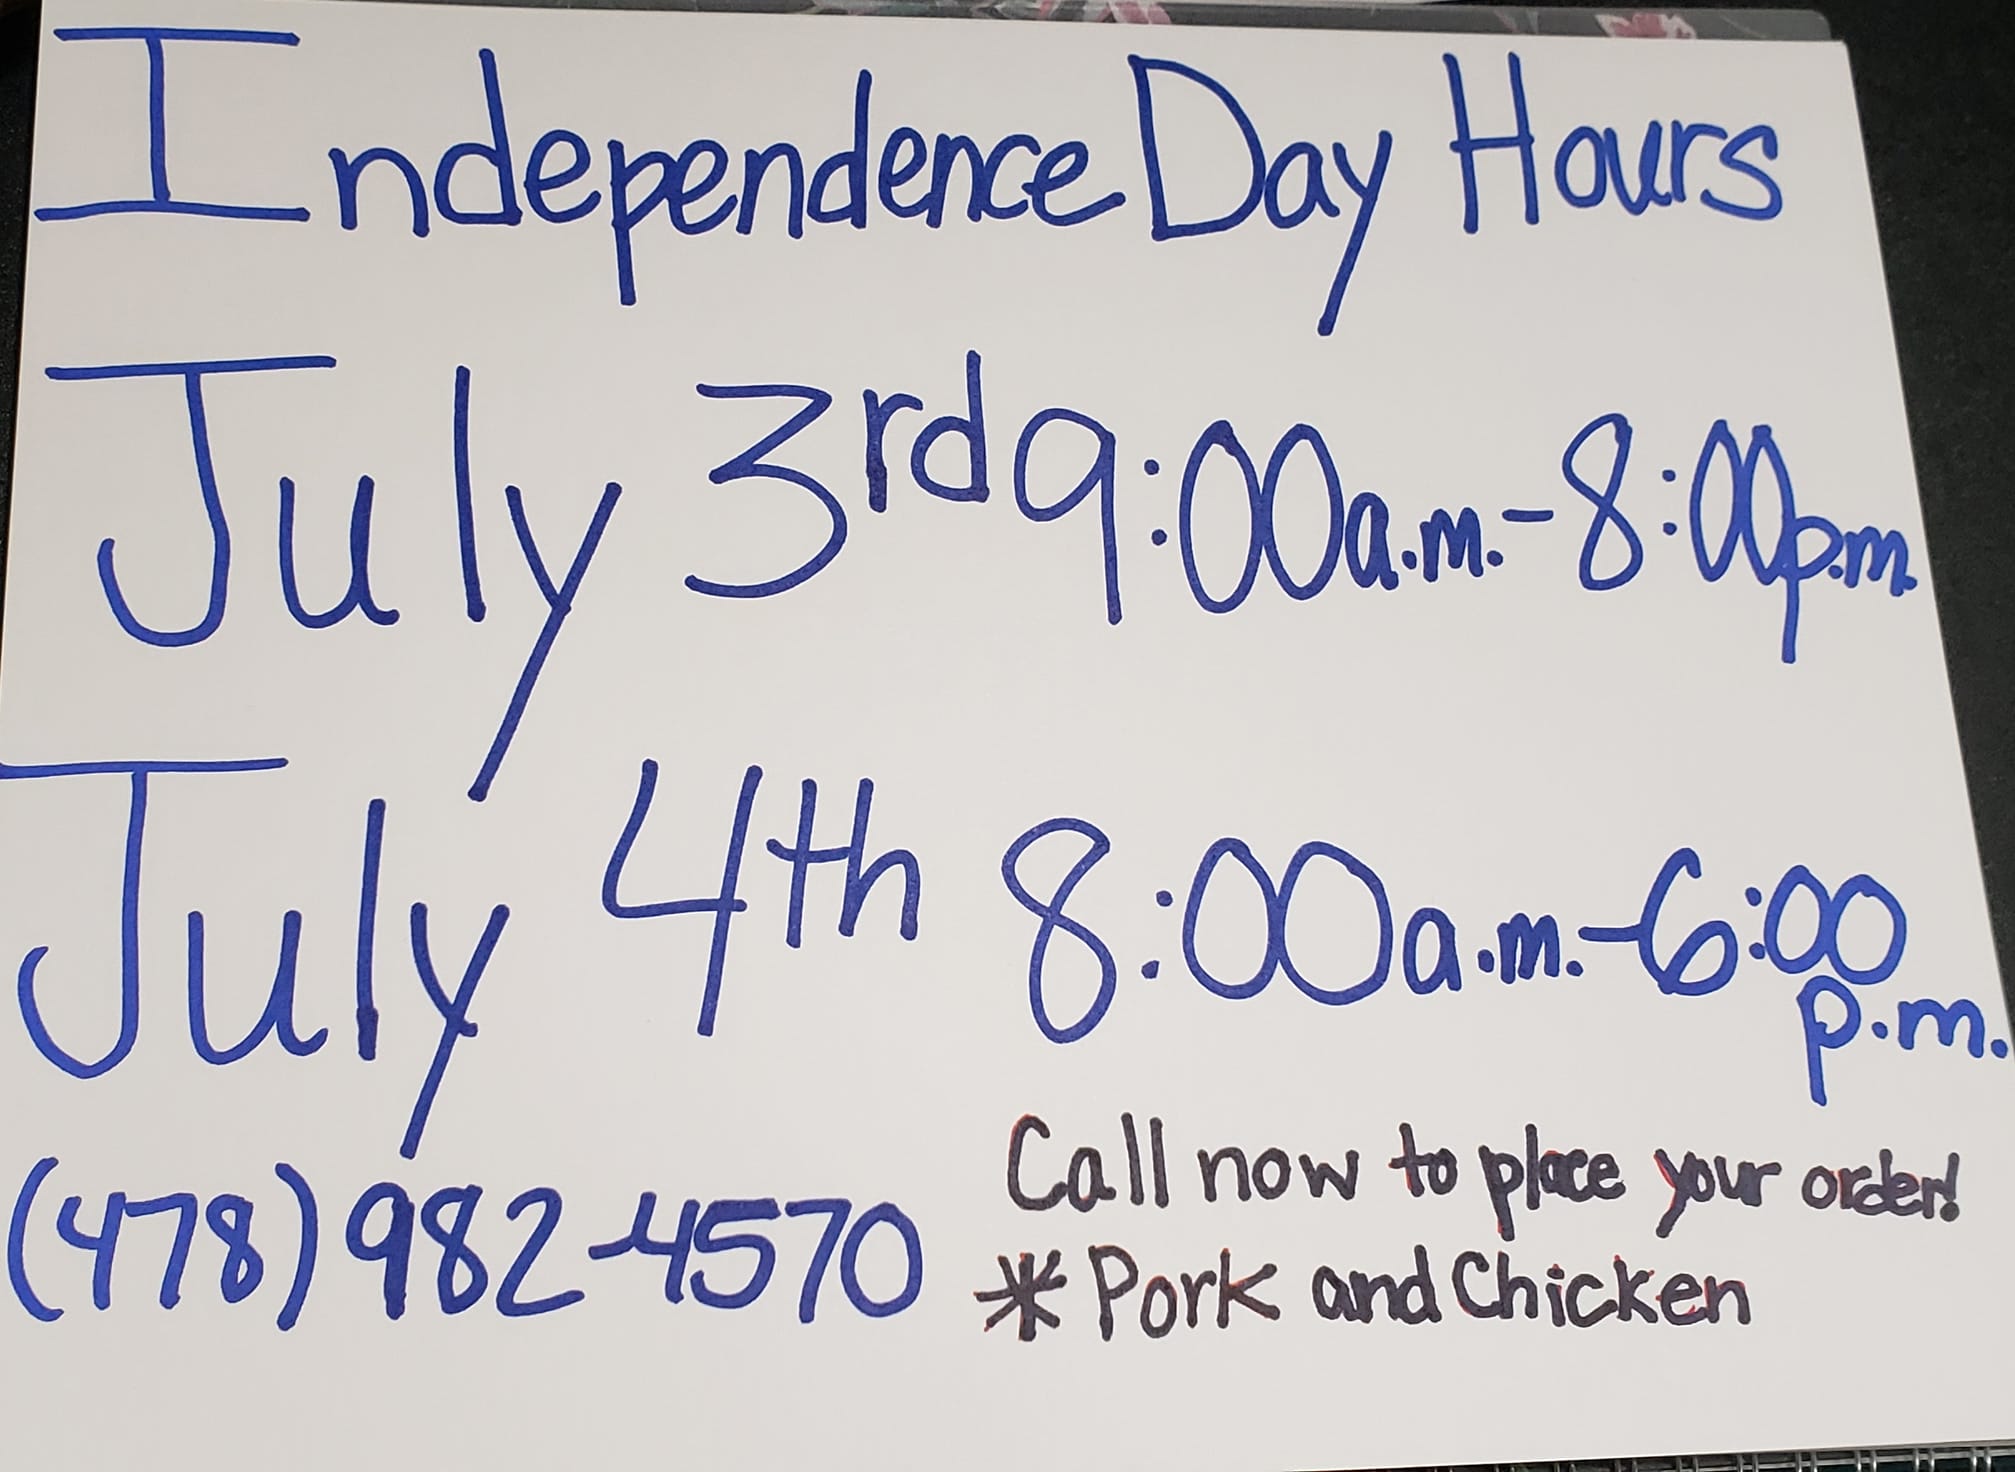 Independence Day Hours
July 3rd 9:00a.m.-8:00p.m.
July 4th 8:00a.m.-6:00
p.m.
(478)982-4570
Call now to place your order!
* Pork and Chicken